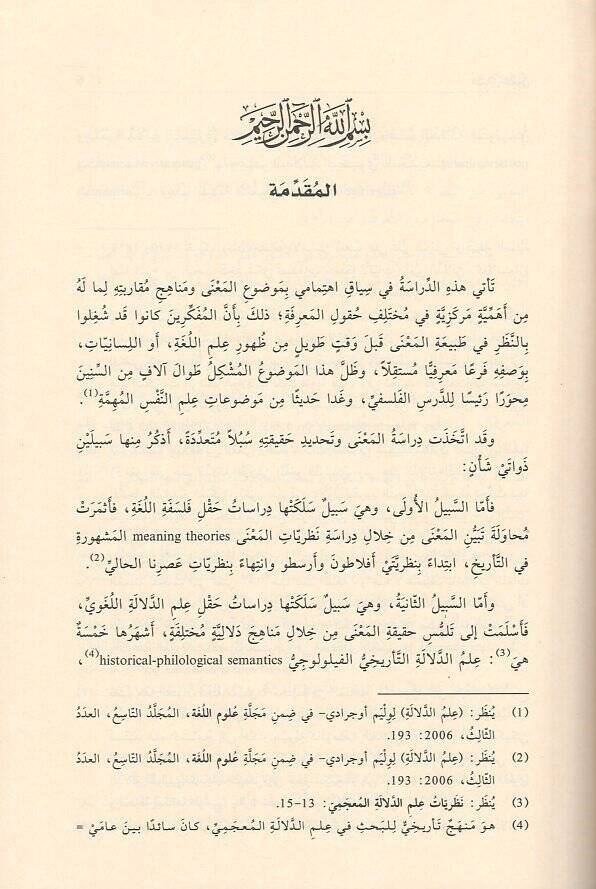 بِسْمِ اللَّهِ الرَّحْمَٰنِ الرَّحِيمِ
المُقَدِّمَة
تَأتي هذهِ الدِّراسَةُ في سِياقِ اهتِمامي بِمَوضوعِ المَعْنَى ومَناهِجِ مُقاربتِهِ لِما لَهُ
مِن أهَمِّيَّةٍ مَركَزِيَّةٍ في مُختَلِفِ حُقولِ المَعرِفَةِ؛ ذلكَ بِأنَّ المُفكِّرينَ كانوا قَد شُغِلوا
بِالنَّظَرِ في طَبيعَةِ المَعْنَى قَبلَ وَقتٍ طَويلٍ مِن ظُهورِ عِلمِ اللُّغَةِ، أو اللِّسانِيّاتِ،
بِوَصفِهِ فَرعًا مَعرِفيًّا مُستَقِلًّا، وظَلَّ هذا المَوضوعُ المُشْكِلُ طَوالَ آلافٍ مِن السِّنينَ
مِحوَرًا رَئيسًا لِلدَّرسِ الفَلسفيِّ، وغَدا حَديثًا مِن مَوضوعاتِ عِلمِ النَّفْسِ المُهِمَّةِ(1).
وقَد اتَّخَذَت دِراسَةُ المَعْنَى وتَحديدِ حَقيقتِهِ سُبُلًا مُتَعدِّدَةً، أذكُرُ مِنها سَبيلَيْنِ
ذَواتَيْ شَأنٍ:
فأمّا السَّبيلُ الأُولَى، وهيَ سَبيلٌ سَلَكَتْها دِراساتُ حَقْلِ فَلسَفَةِ اللُغَةِ، فأثمَرَتْ
مُحاوَلَةَ تَبَيُّنِ المَعْنَى مِن خِلالِ دِراسَةِ نَظَرِيّاتِ المَعْنَى meaning theories المَشهورةِ
في التَّأريخِ، ابتِداءً بِنظريَّتَيْ أفلاطونَ وأرسطو وانتِهاءً بِنظريّاتِ عَصرِنا الحاليِّ(2).
وأمّا السَّبيلُ الثّانيَةُ، وهيَ سَبيلٌ سَلَكَتْها دِراساتُ حَقْلِ عِلمِ الدَّلالَةِ اللغَويِّ،
فَأسْلَمَتْ إلى تَلَمُّسِ حَقيقةِ المَعْنَى مِن خِلالِ مَناهِجَ دَلاليَّةٍ مُختَلِفَةٍ، أشهَرُها خَمْسَةٌ
هيَ(3): عِلمُ الدَّلالَةِ التَّأريخِيُّ الفيلولوجِيُّ historical-philological semantics(4)،
(1) يُنظَر: (عِلمُ الدَّلالَةِ) لِوِلْيَم أوجرادي- في ضِمنِ مَجَلَّةِ عُلومِ اللغَة، المُجَلَّدُ التّاسِعُ، العددُ
الثّالِثُ، 2006: 193.
(2) يُنظَر: (عِلمُ الدَّلالَةِ) لِوِلْيَم أوجرادي- في ضِمنِ مَجَلَّةِ عُلومِ اللغَة، المُجَلَّدُ التّاسِعُ، العددُ
الثّالِثُ، 2006: 193.
(3) يُنظَر: نَظَريّاتُ عِلمِ الدَّلالَةِ المُعجَمِيِّ: 13-15.
(4) هوَ مَنهَجٌ تَأريخيٌّ لِلبَحثِ في عِلمِ الدَّلالَةِ المُعجَمِيِّ، كانَ سائدًا بينَ عامَيْ =